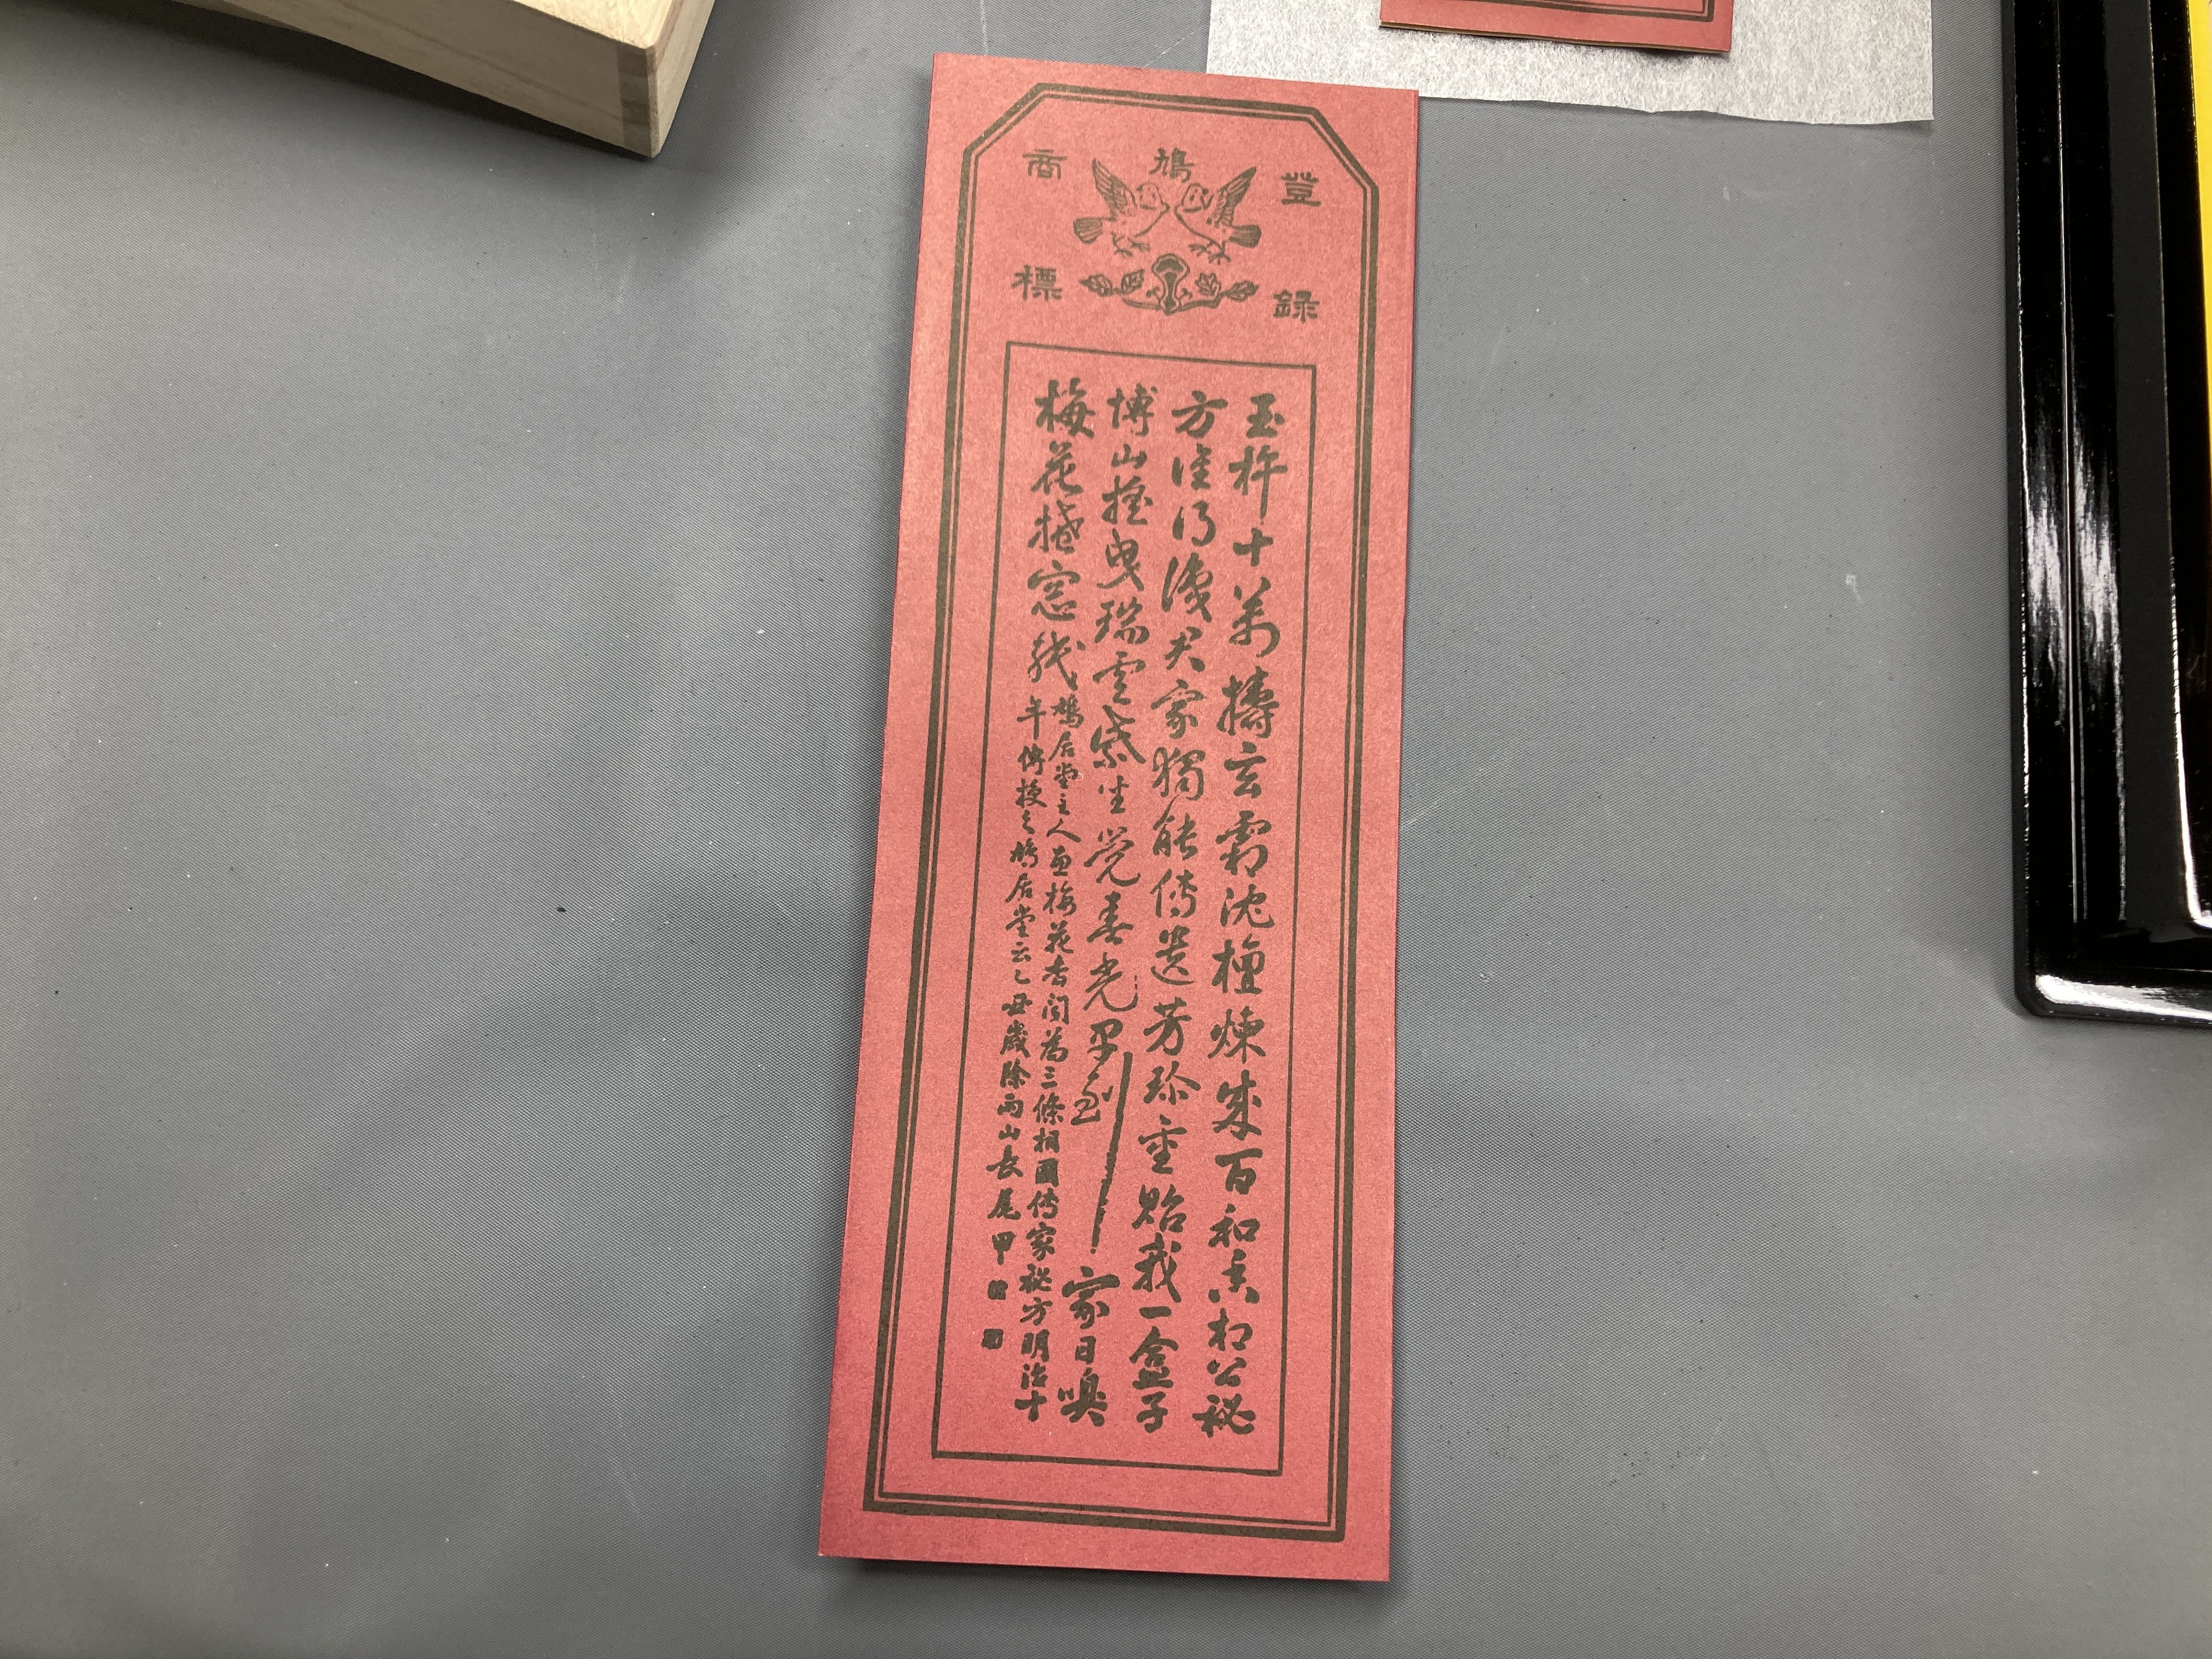 登録
鳩
商標
玉杵十萬擣玄霜沈檀煉成百和香相公秘
方誰得君家獨能傳遺芳珍重貽我一盒子
博山搖曳瑞雲紫坐覚春光早到家日嗅
梅花捲窓紙
鳩居堂主人惠梅花香聞為三條相國傳家秘方明治十
年傳授之鳩居堂云乙丑歲除雨山長尾甲